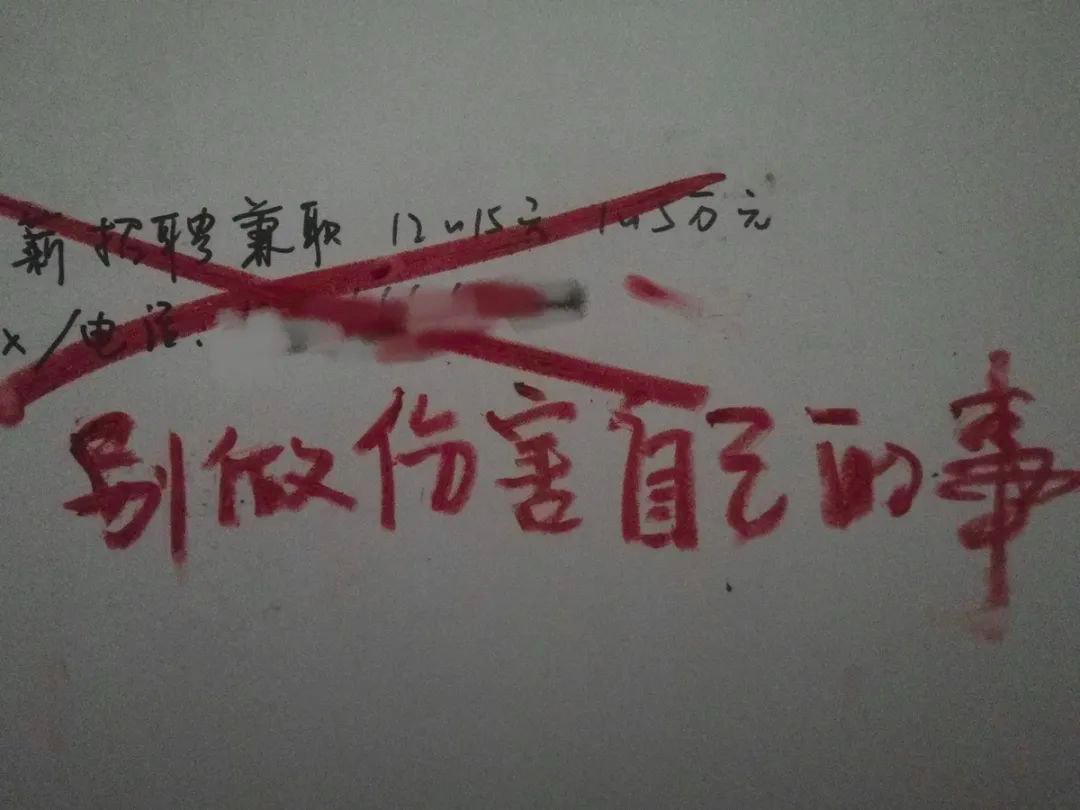 薪招聘兼职 12~15元 1~5万元
x/电话:
别做伤害自己的事